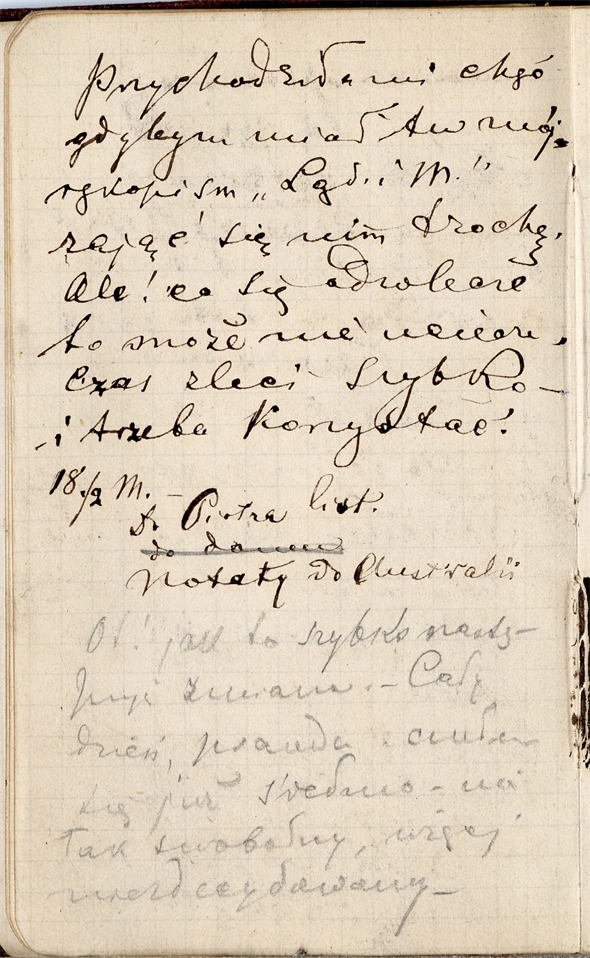 Przychodziła mi chęć
gdybym miał tu mój
rękopism „Lądu i M.”
zająć się nim trochę.
Ale! co się odwlecze
to może nie uciecze,
czas zleci szybko –
i trzeba korzystać!
18./2 M. –
Do Piotra list.
do domu
Notaty do Australii
Ot! jak to szybko nastę–
puje zmiana. – Cały
dzień, prawda
się już średnio – nie
tak swobodny, więcej
niezdecydowany –